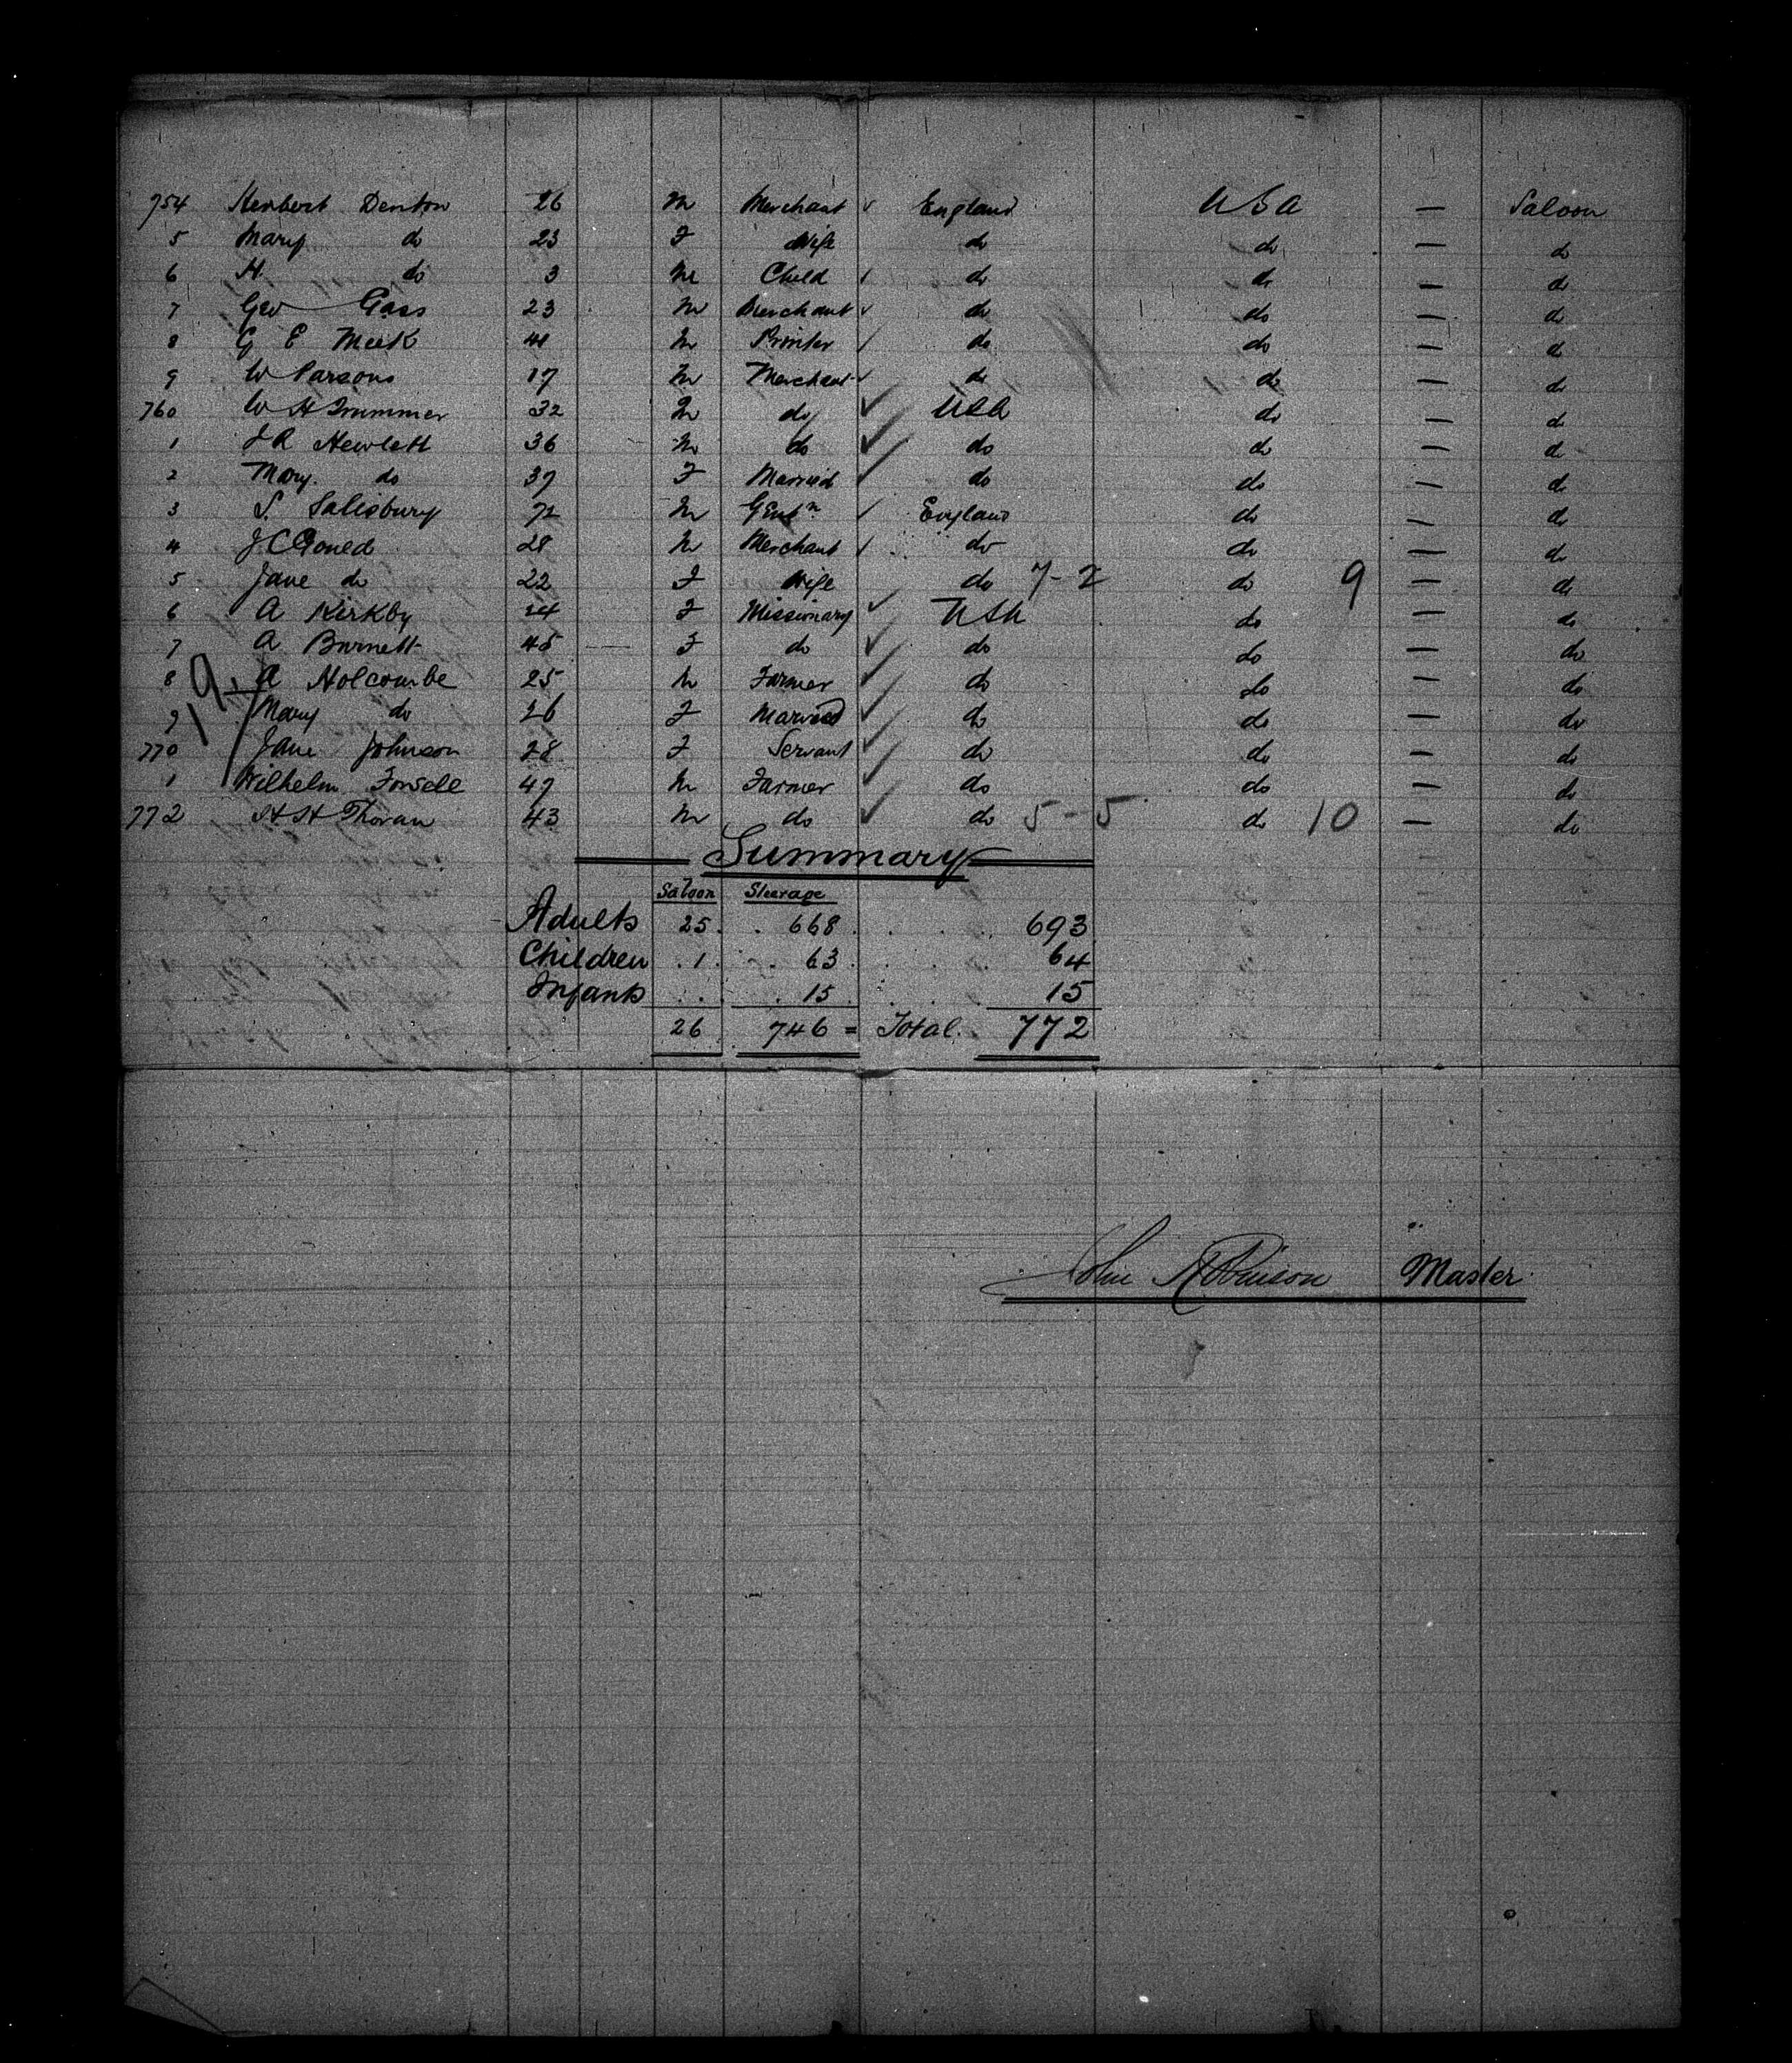 754 Herbert Denton 26 M Merchant ✓ England USA — Saloon
5 Mary do 23 F Wife do do — do
6 H. do 3 M Child ✓ do do — do
7 Geo Gass 23 M Merchant ✓ do do — do
8 G E Meek 41 M Printer ✓ do do — do
9 W Parsons 17 M Merchant ✓ do do — do
760 W H Trummer 32 M do ✓ USA do — do
1 J R Hewlett 36 M do ✓ do do — do
2 Mary do 37 F Married ✓ do do — do
3 S. Salisbury 72 M Gentn ✓ England do — do
4 J C Gould 28 M Merchant ✓ do do — do
5 Jane do 22 F Wife do 7-2 do 9 — do
6 A Kirkby 24 F Missionary ✓ USA do — do
7 A Burnett 45 F do ✓ do do — do
8 A Holcombe 25 M Farmer ✓ do do — do
19
9 Mary do 26 F Married ✓ do do — do
770 Jane Johnson 28 F Servant ✓ do do — do
1 Wilhelm 47 M Farmer ✓ do do — do
772 H H Thoran 43 M do ✓ do 5-5 do 10 — do
Summary
Saloon Steerage
Adults 25 668 693
Children 1 63 64
Infants 15 15
26 746 = Total 772
John Robinson Master